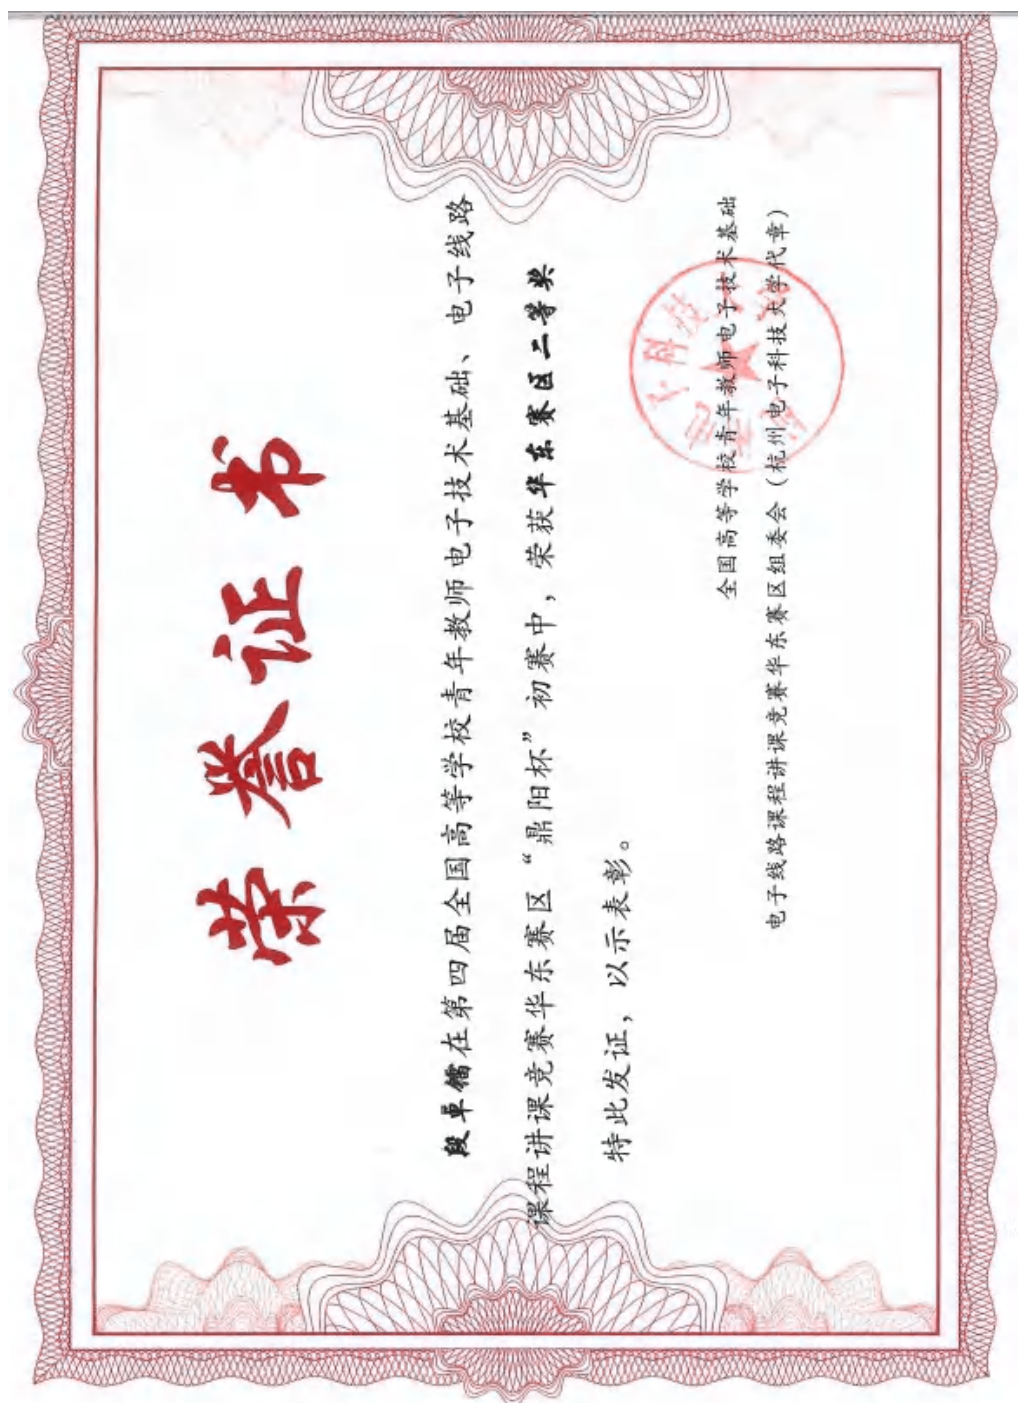 荣誉证书
段卓镭在第四届全国高等学校青年教师电子技术基础、电子线路
课程讲课竞赛华东赛区“鼎阳杯”初赛中，荣获华东赛区二等奖
特此发证，以示表彰。
全国高等学校青年教师电子技术基础
电子线路课程讲课竞赛华东赛区组委会（杭州电子科技大学代章）